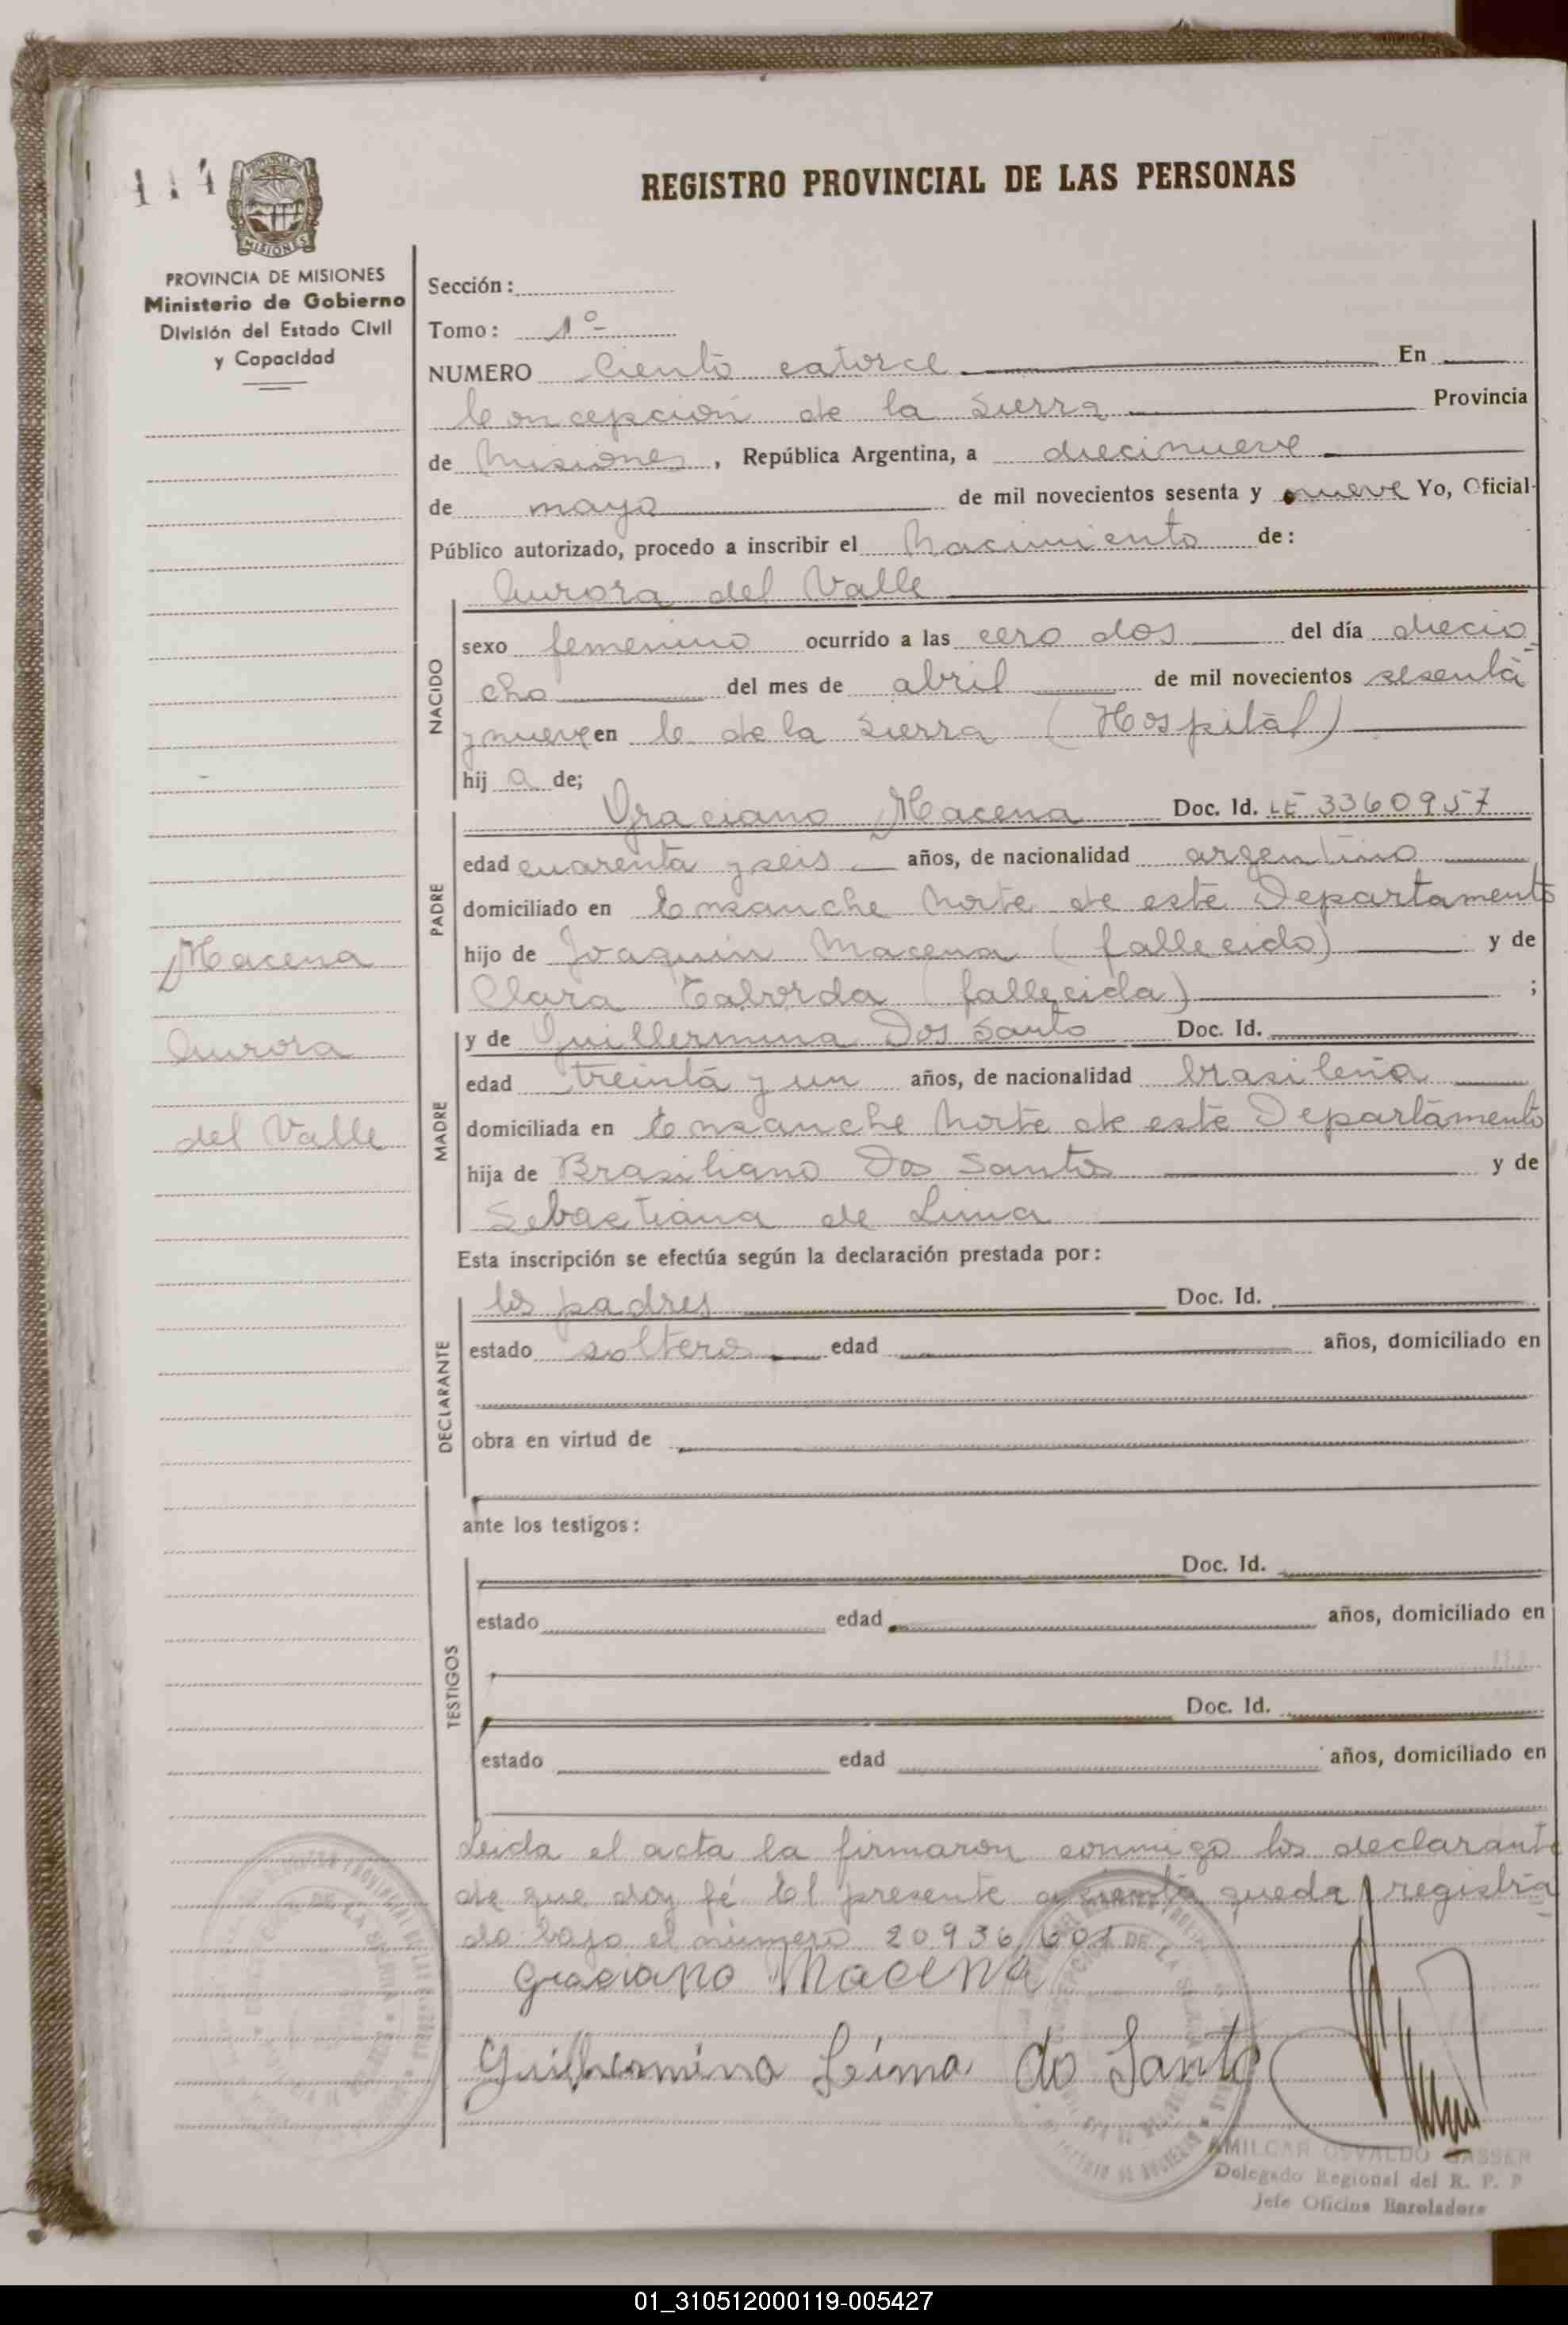 114
PROVINCIA DE
MISIONES
PROVINCIA DE MISIONES
Ministerio de Gobierno
División del Estado Civil
y Capacidad
REGISTRO PROVINCIAL DE LAS PERSONAS
Sección:
Tomo: 1º
NUMERO Ciento catorce En
Concepción de la Sierra Provincia
de Misiones, República Argentina, a diecinueve
de mayo de mil novecientos sesenta y nueve Yo, Oficial
Público autorizado, procedo a inscribir el Nacimiento de:
Aurora del Valle
NACIDO
sexo femenino ocurrido a las cero dos del día diecio
cho del mes de abril de mil novecientos sesenta
y nueve en C de la Sierra (Hospital)
hij a de;
PADRE
Graciano Macena Doc. Id. LE 3360957
edad cuarenta y seis años, de nacionalidad argentino
domiciliado en Ensanche Norte de este Departamento
hijo de Joaquin Macena (fallecido) y de
Clara Taborda (fallecida) ;
MADRE
y de Guillermina Dos Santo Doc. Id.
edad treinta y un años, de nacionalidad brasileña
domiciliada en Ensanche Norte de este Departamento
hija de Brasiliano Dos Santos y de
Sebastiana de Lima
Macena
Aurora
del Valle
Esta inscripción se efectúa según la declaración prestada por:
DECLARANTE
los padres Doc. Id.
estado solteros edad años, domiciliado en
obra en virtud de
ante los testigos:
TESTIGOS
Doc. Id.
estado edad años, domiciliado en
Doc. Id.
estado edad años, domiciliado en
Leida el acta la firmaron conmigo los declarante
de que doy fé El presente asiento queda registra
do bajo el número 20936601
Graciano Macena
Guilhermina Leima do Santo
AMILCAR OSVALDO GASSER
Delegado Regional del R. P. P
Jefe Oficina
01_310512000119-005427